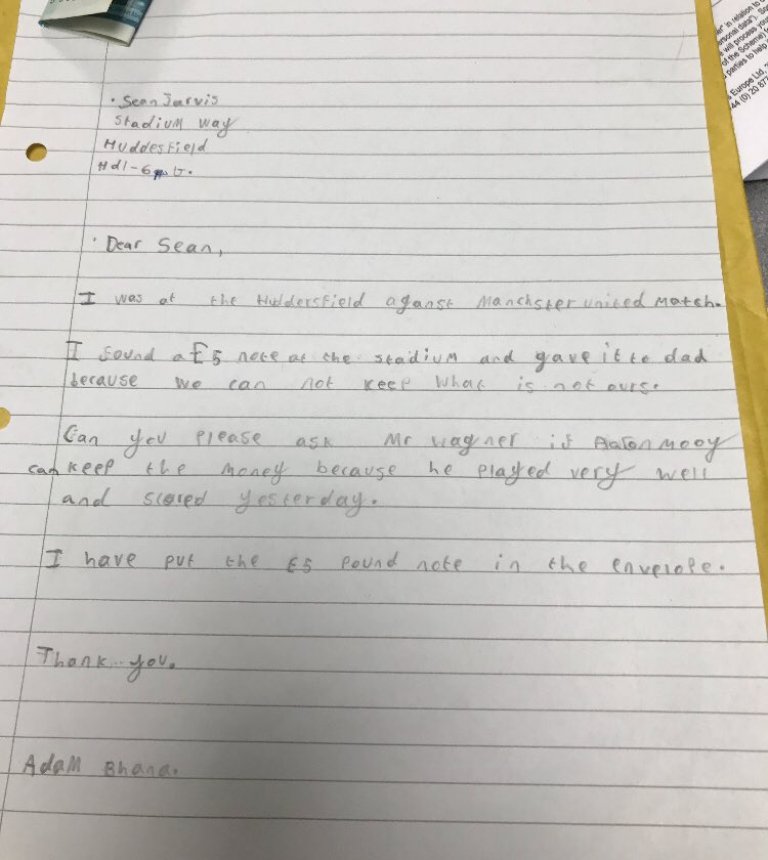 · Sean Jarvis
Stadium Way
Huddesfield
Hd1-6
· Dear Sean,
I was at the Huddersfield aganst Manchster united Match.
I found a £5 note at the stadium and gave it to dad
because we can not keep what is not ours.
Can you please ask Mr wagner if Aaron mooy
can keep the money because he played very well
and scored yesterday.
I have put the £5 pound note in the envelope.
Thank you.
Adam Bhana.
in relation to
ersonal data"). So
will process your
of the Scheme)
parties to help
Europe Ltd,
44 (0) 20 87